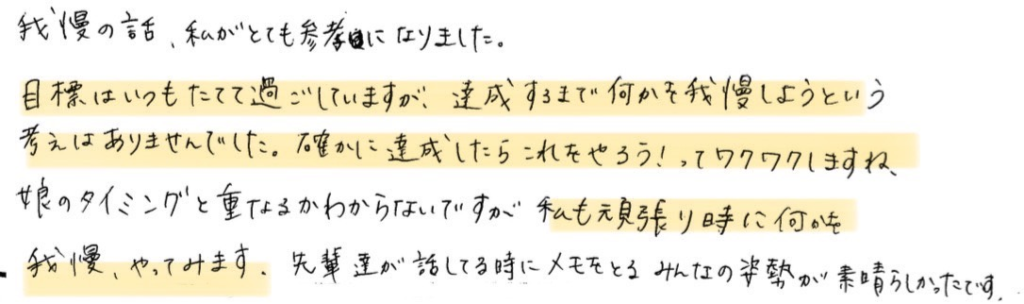 我慢の話、私がとても参考になりました。
目標はいつもたてて過ごしていますが、達成するまで何かを我慢しようという
考えはありませんでした。確かに達成したらこれをやろう！ってワクワクしますね、
娘のタイミングと重なるかわからないですが 私も頑張り時に何かを
我慢、やってみます。先輩達が話してる時にメモをとる みんなの姿勢が素晴らしかったです。